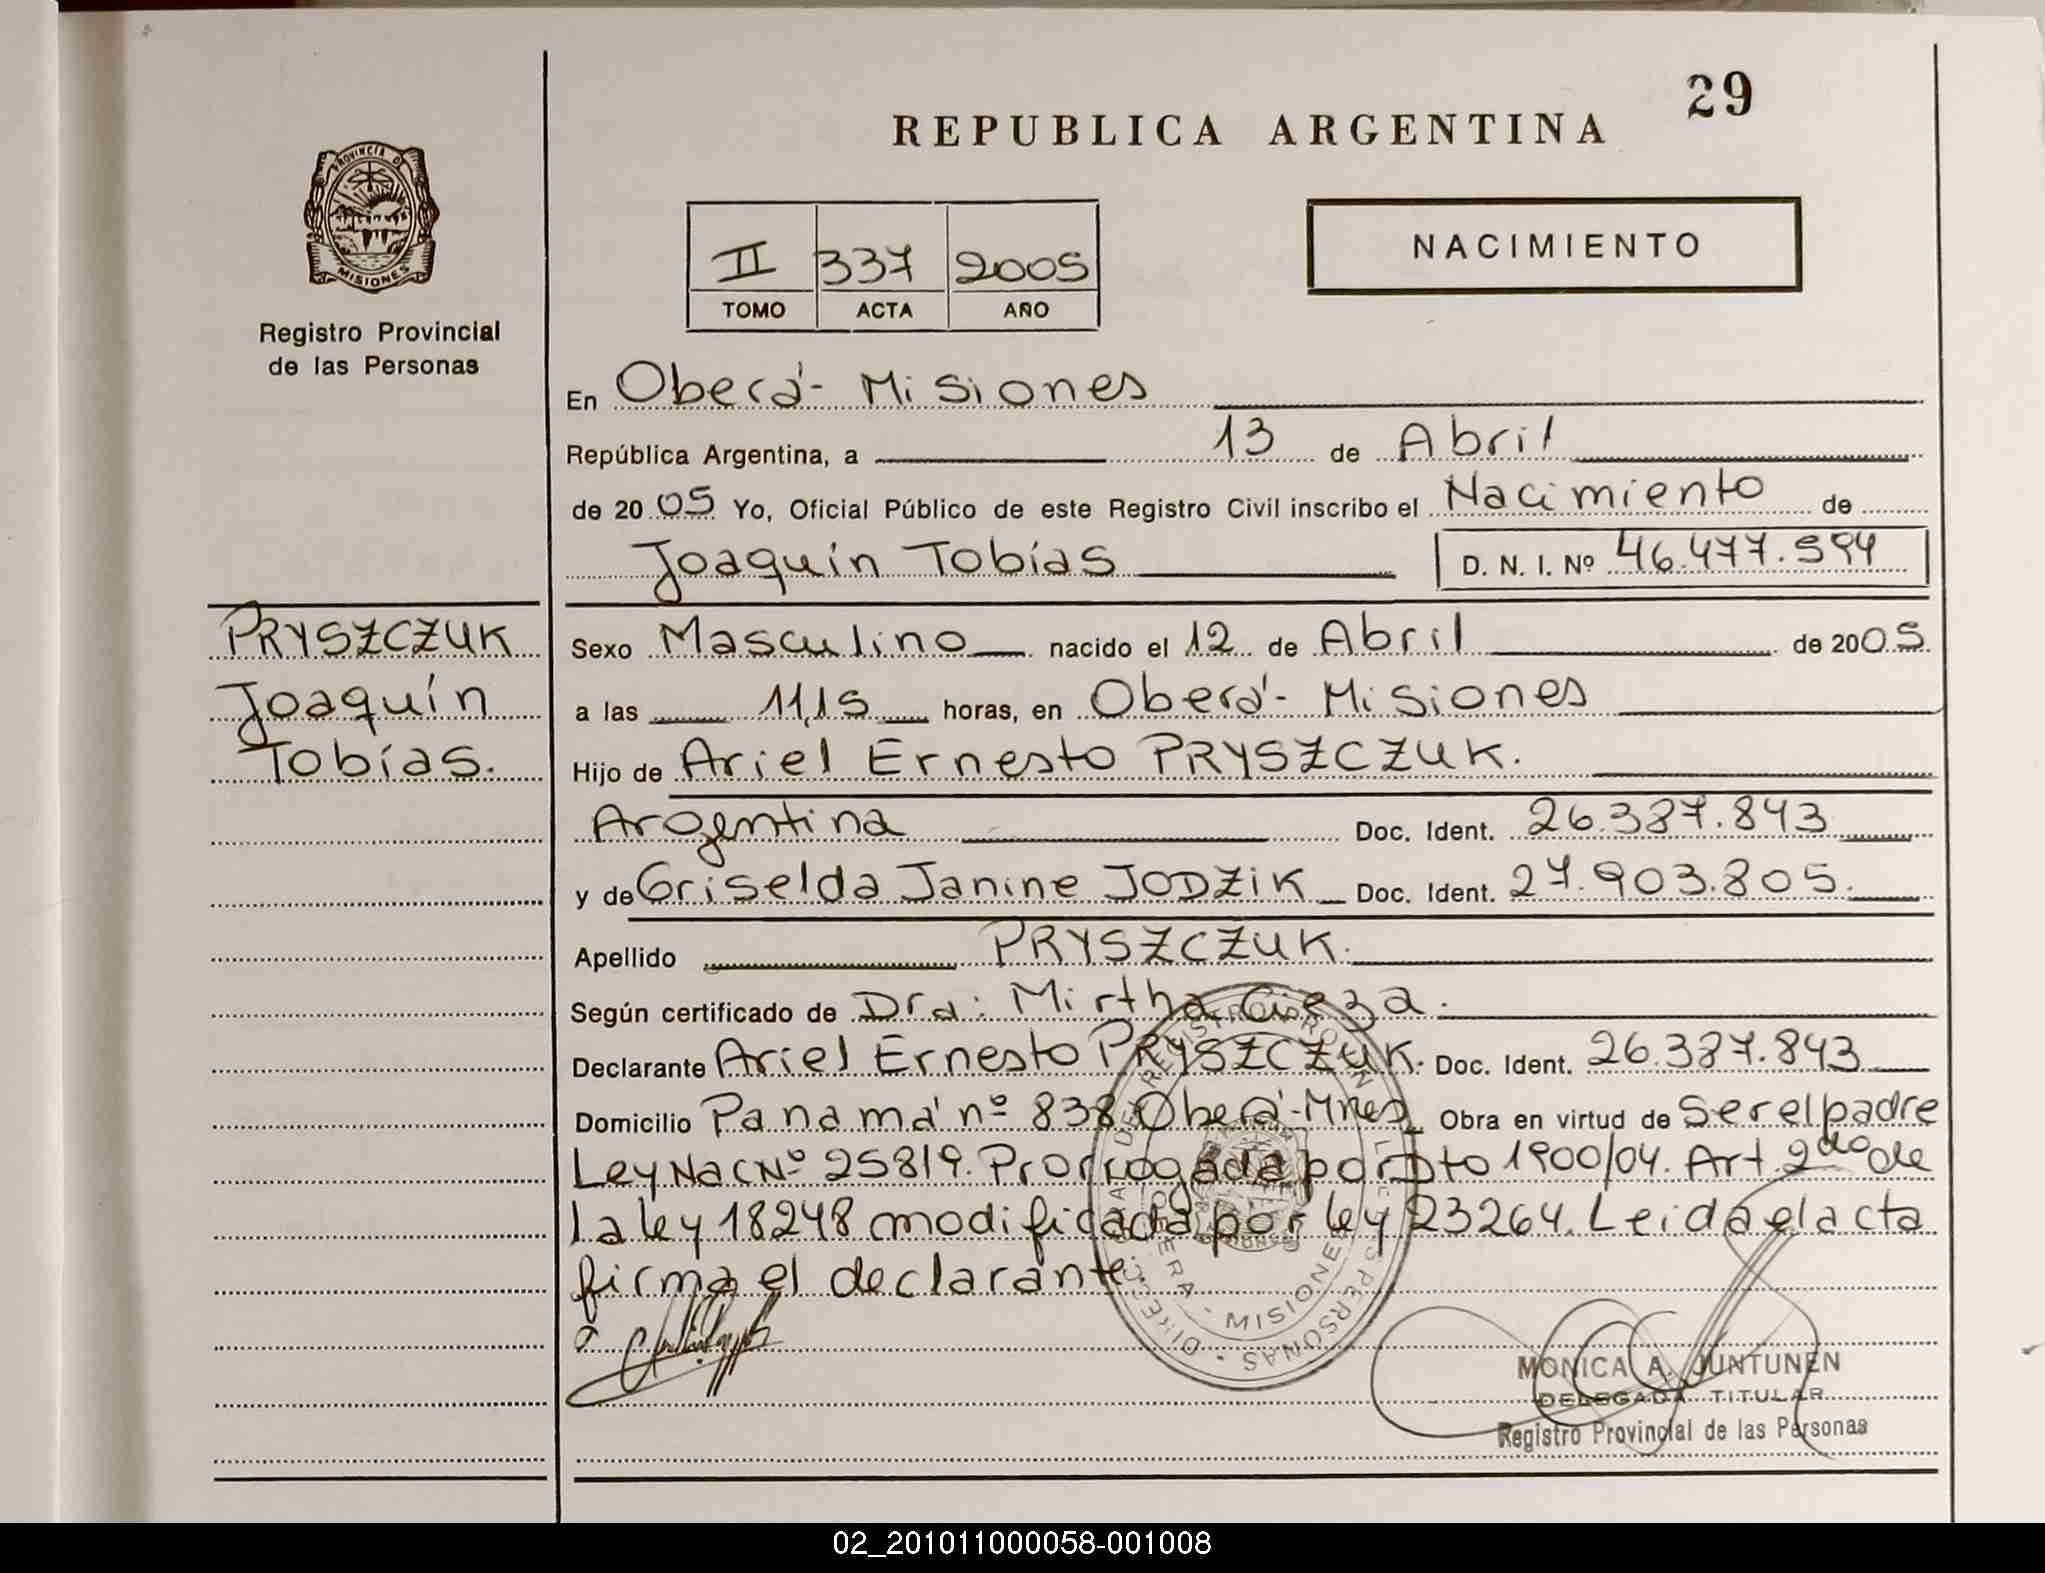 29
REPUBLICA ARGENTINA
PROVINCIA DE
MISIONES
Registro Provincial
de las Personas
II 337 2005
TOMO ACTA AÑO
NACIMIENTO
En Oberá - Misiones
República Argentina, a 13 de Abril
de 2005 Yo, Oficial Público de este Registro Civil inscribo el Nacimiento de
Joaquín Tobías D. N. I. Nº 46.477.594
PRYSZCZUK
Joaquín
Tobías.
Sexo Masculino nacido el 12 de Abril de 2005.
a las 11,15 horas, en Oberá - Misiones
Hijo de Ariel Ernesto PRYSZCZUK.
Argentina Doc. Ident. 26.387.843
y de Griselda Janine JODZIK Doc. Ident. 27.903.805.
Apellido PRYSZCZUK.
Según certificado de Dra: Mirtha Cieza.
Declarante Ariel Ernesto PRYSZCZUK. Doc. Ident. 26.387.843
Domicilio Panamá nº 838 Oberá - Mnes Obra en virtud de Ser el padre
Ley Nac Nº 25819. Prorrogada por Dto 1900/04. Art. 2do de
la ley 18248 modificada por ley 23264. Leida el acta
firma el declarante.
MISIONES
MONICA A. JUNTUNEN
DELEGADA TITULAR
Registro Provincial de las Personas
02_201011000058-001008